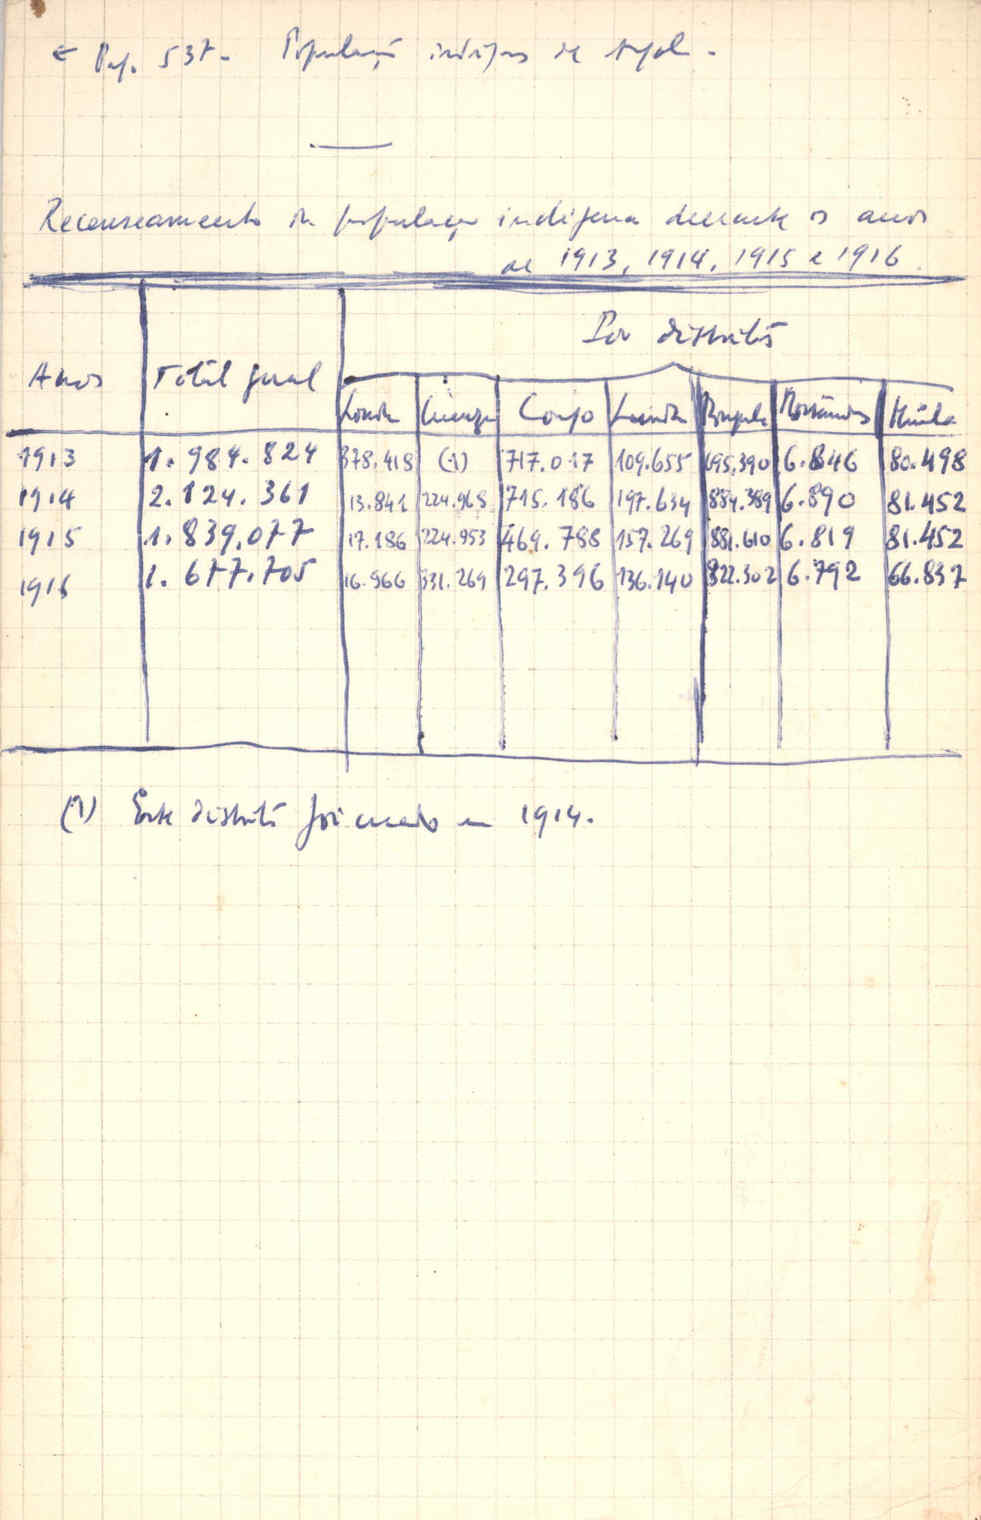 ← Pag. 537 - População indígena de Angola -
Recenseamento da população indígena durante os anos
de 1913, 1914, 1915 e 1916
Por distritos
Anos Total geral Loanda Cuanza Congo Lunda Benguela Mossâmedes Huíla
1913 1.984.824 378.418 (1) 717.017 109.655 695.390 6.846 80.498
1914 2.124.361 13.841 224.968 715.186 197.634 884.389 6.890 81.452
1915 1.839.077 17.186 224.953 469.788 157.269 881.610 6.819 81.452
1916 1.677.705 16.966 331.269 297.396 136.140 822.302 6.792 66.837
(1) Este distrito foi criado em 1914.